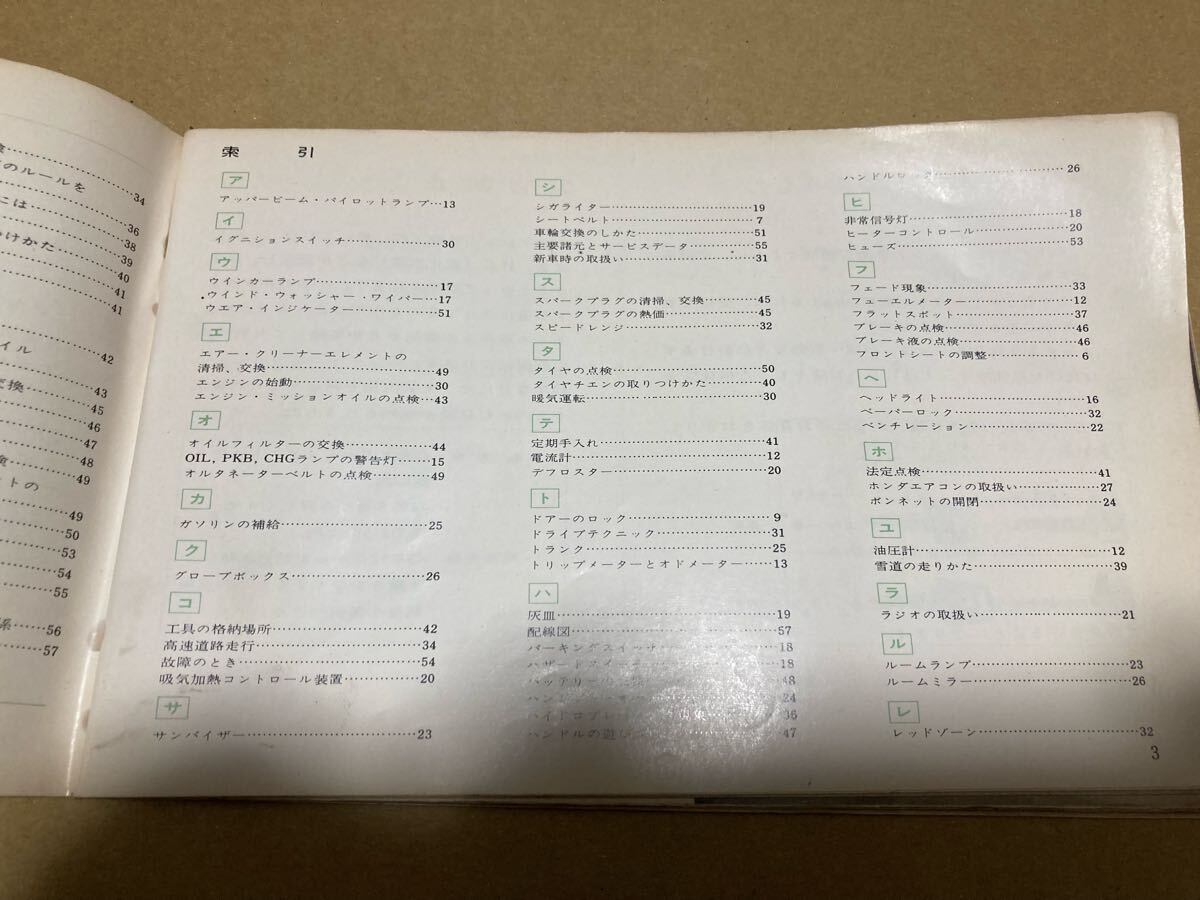 34
のルールを
には
36
38
つけかた
39
40
41
41
イル
42
交換
43
45
46
47
48
49
トの
49
50
53
54
55
系……56
57
索 引
ア
アッパービーム・パイロットランプ…13
イ
イグニションスイッチ…………………30
ウ
ウインカーランプ………………………17
ウインド・ウォッシャー・ワイパー…17
ウエア・インジケーター………………51
エ
エアー・クリーナーエレメントの
清掃、交換………………………………49
エンジンの始動…………………………30
エンジン・ミッションオイルの点検…43
オ
オイルフィルターの交換………………44
OIL, PKB, CHGランプの警告灯……15
オルタネーターベルトの点検…………49
カ
ガソリンの補給…………………………25
ク
グローブボックス………………………26
コ
工具の格納場所…………………………42
高速道路走行……………………………34
故障のとき………………………………54
吸気加熱コントロール装置……………20
サ
サンバイザー……………………………23
シ
シガライター……………………………19
シートベルト……………………………7
車輪交換のしかた………………………51
主要諸元とサービスデータ……………55
新車時の取扱い…………………………31
ス
スパークプラグの清掃、交換…………45
スパークプラグの熱価…………………45
スピードレンジ…………………………32
タ
タイヤの点検……………………………50
タイヤチエンの取りつけかた…………40
暖気運転…………………………………30
テ
定期手入れ………………………………41
電流計……………………………………12
デフロスター……………………………20
ト
ドアーのロック…………………………9
ドライブテクニック……………………31
トランク…………………………………25
トリップメーターとオドメーター……13
ハ
灰皿………………………………………19
配線図……………………………………57
パーキングスイッチ……………………18
ハザードスイッチ………………………18
バッテリーの 48
ハンドル 24
ハイドロプレー 現象 36
ハンドルの遊び 47
ハンドルロック…………………………26
ヒ
非常信号灯………………………………18
ヒーターコントロール…………………20
ヒューズ…………………………………53
フ
フェード現象……………………………33
フューエルメーター……………………12
フラットスポット………………………37
ブレーキの点検…………………………46
ブレーキ液の点検………………………46
フロントシートの調整…………………6
ヘ
ヘッドライト……………………………16
ベーパーロック…………………………32
ベンチレーション………………………22
ホ
法定点検…………………………………41
ホンダエアコンの取扱い………………27
ボンネットの開閉………………………24
ユ
油圧計……………………………………12
雪道の走りかた…………………………39
ラ
ラジオの取扱い…………………………21
ル
ルームランプ……………………………23
ルームミラー……………………………26
レ
レッドゾーン……………………………32
3